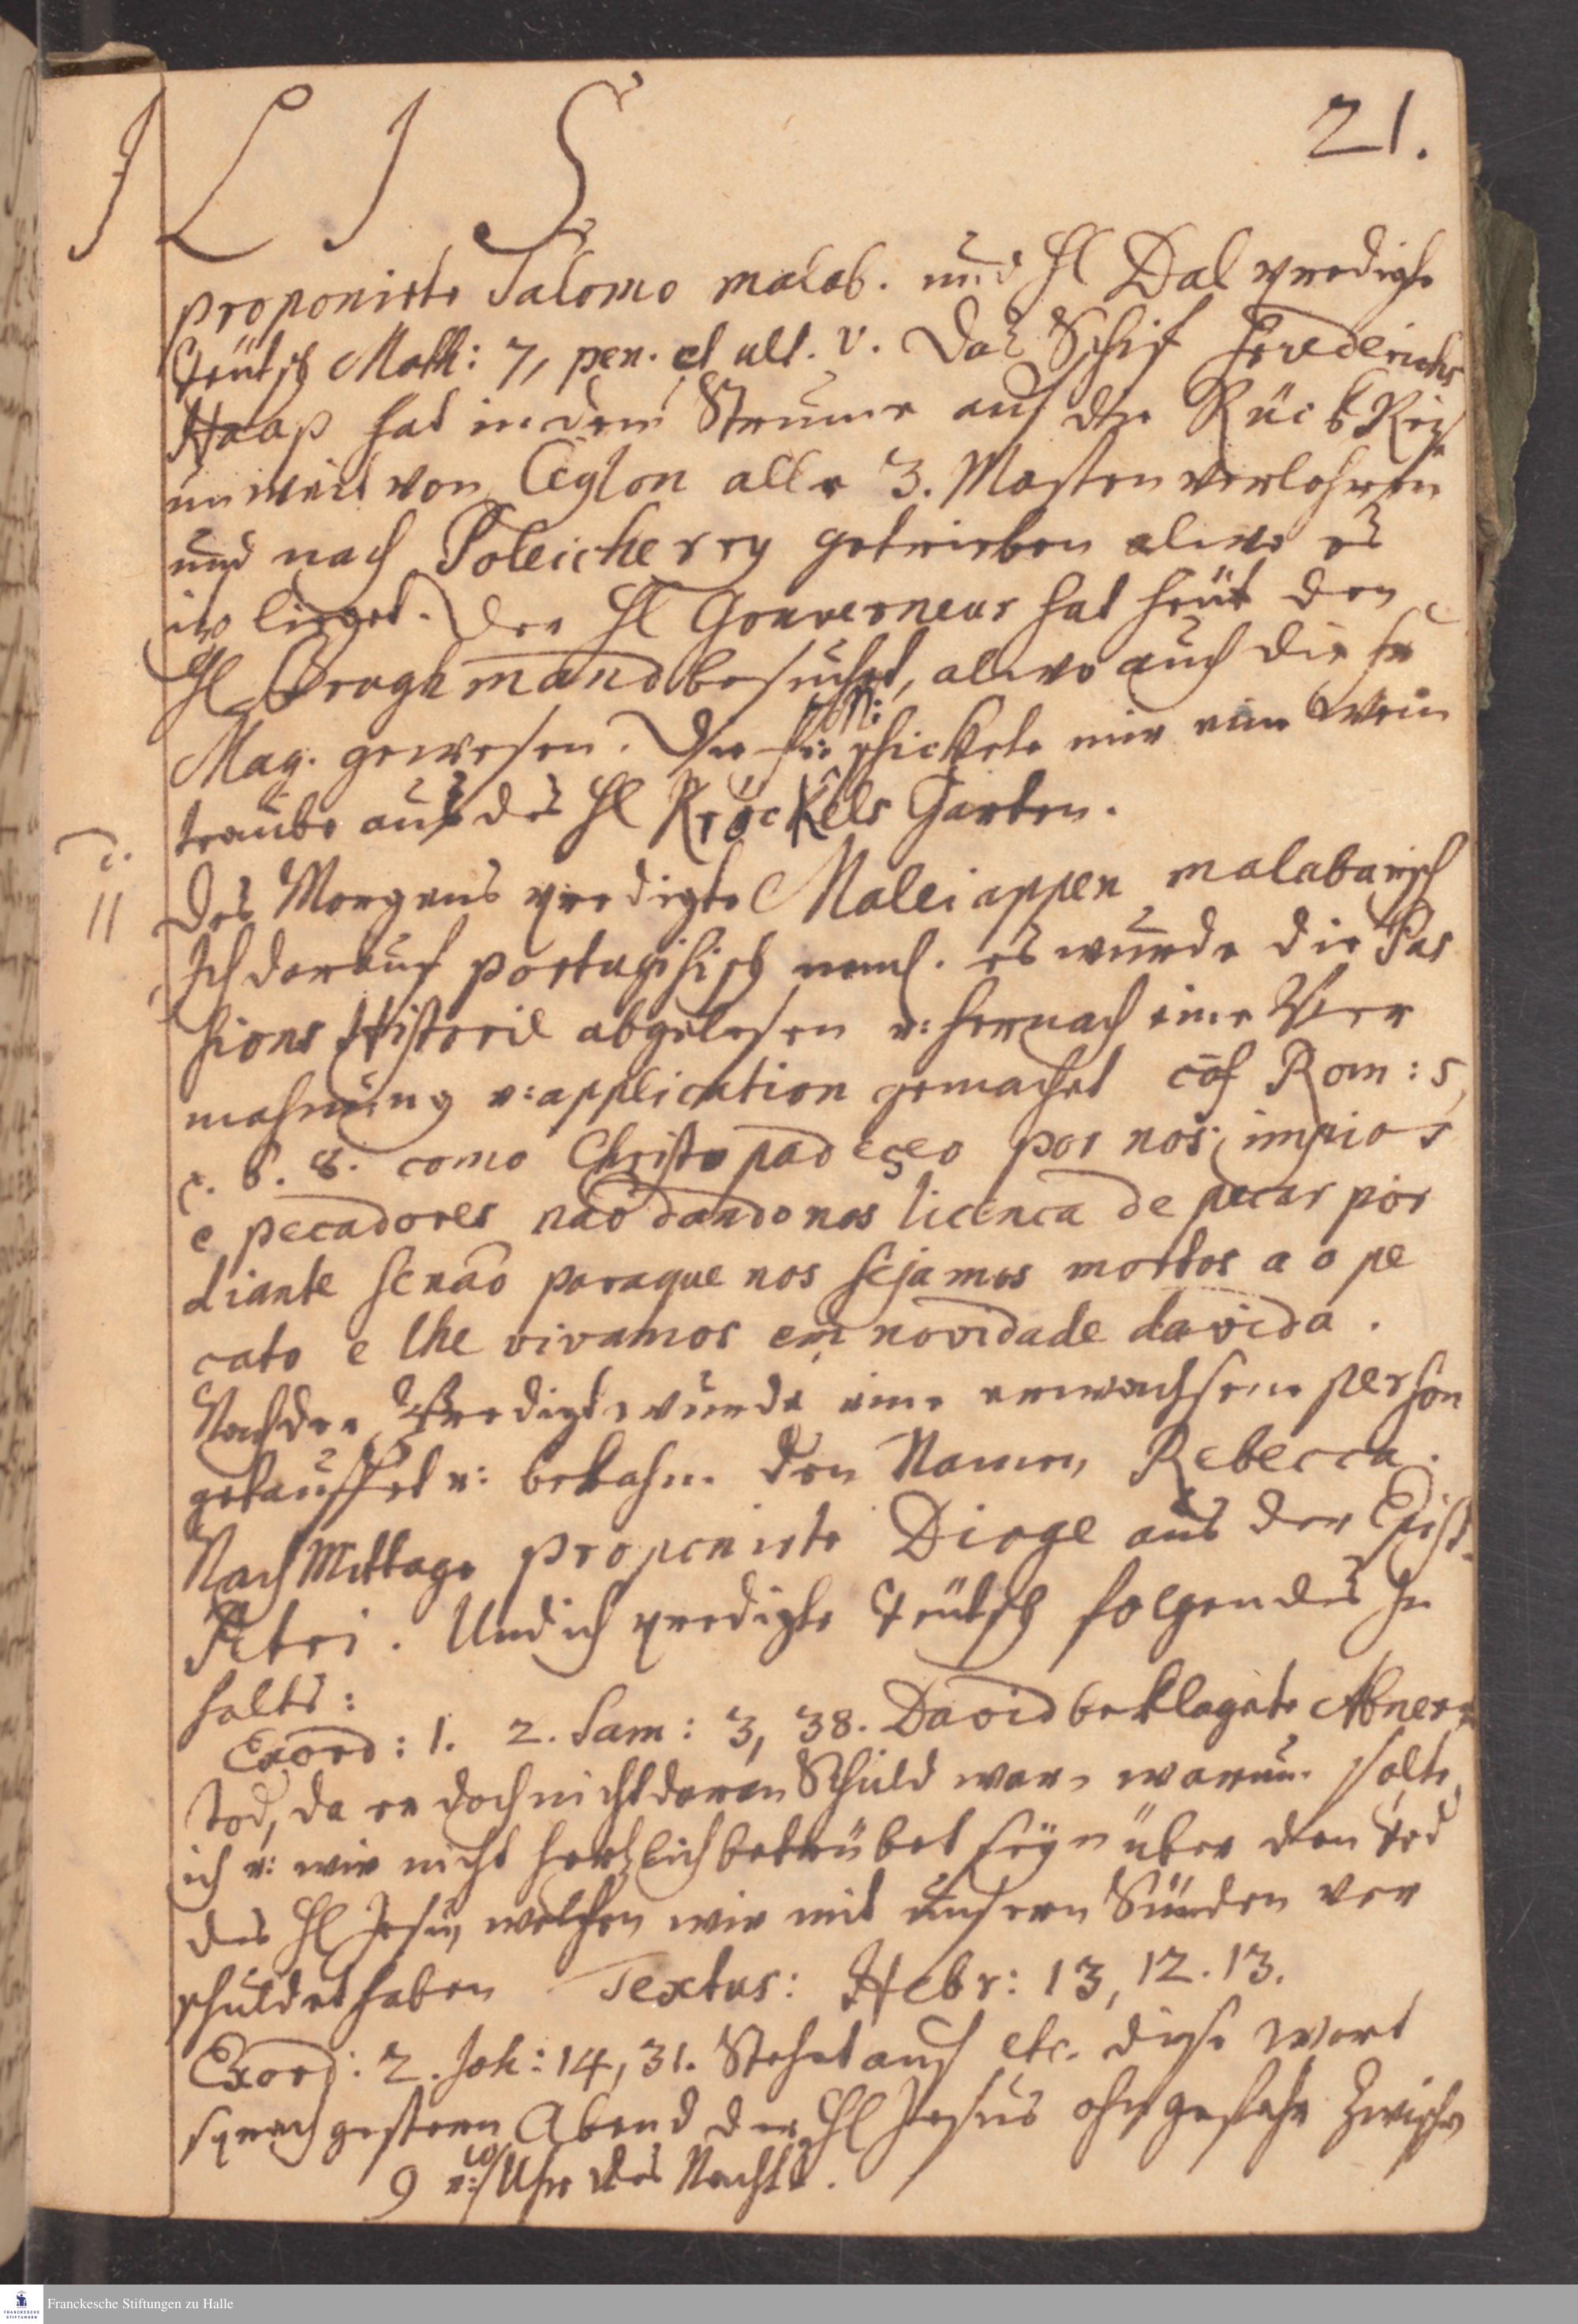 21.
A L I S
proponirte Salomo malab. und H. Dal predigte
teütsch Matth: 7, pen. et ult. v. Das Schif Frederichs
Haab hat in dem Sturme auf der Rück Reise
unweit von Ceylon alle 3. Masten verlohren
und nach Poleicherry getrieben alwo es
izo lieget. Der H. Gouverneur hat heüt den
H. Brughmand besuchet, alwo auch die Fr
Mag. gewesen. Die Fr: M: schickete mir eine Wein
traube aus des H. Kröckels Garten.
d.
11
Des Morgens predigte Maleiappen malabarisch
Ich darauf portugisisch neml. es wurde die Pas
sions Historie abgelesen u: hernach eine Ver
mahnung u: application gemachet conf Rom: 5,
v. 6. 8. como Christo padeçeo por nos impios
e pecadores não dando nos licenca de pecar por
diante senaõ paraque nos sejamos mortos a o pe
cato e lhe vivamos em novidade da vida.
Nach der Predigt wurde eine erwachsene Person
getauffet u: bekahm den Namen Rebecca.
Nach Mittage proponirte Dioge aus der Epist.
Petri. Und ich predigte teütsch folgendes In
halts:
Exord: 1. 2. Sam: 3, 38. David beklagete Abners
tod, da er doch nicht daran Schuld war, warum solte
ich u: wir nicht hertzlich betrübet seyn über den Tod
des H. Jesu, welchen wir mit unsern Sünden ver
schuldet haben Textus: Hebr: 13, 12. 13.
Exord: 2. Joh: 14, 31. Stehet auf etc. diese Wort
sprach gestern Abend der H. Jesus ohngefehr zwischen
9 u: 10 Uhr des Nachts.
Franckesche Stiftungen zu Halle